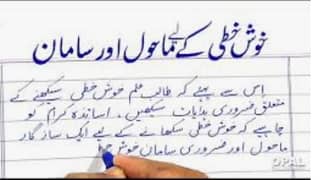 خوش خطی کے لیے ماحول اور سامان
اس سے پہلے کہ طالب علم خوش خطی سیکھنے کے
متعلق ضروری ہدایات سیکھیں۔ اساتذہ کرام کو
چاہیے کہ خوش خطی سکھانے کے لیے ایک سازگار
ماحول اور ضروری سامان خوش خط
OPAL